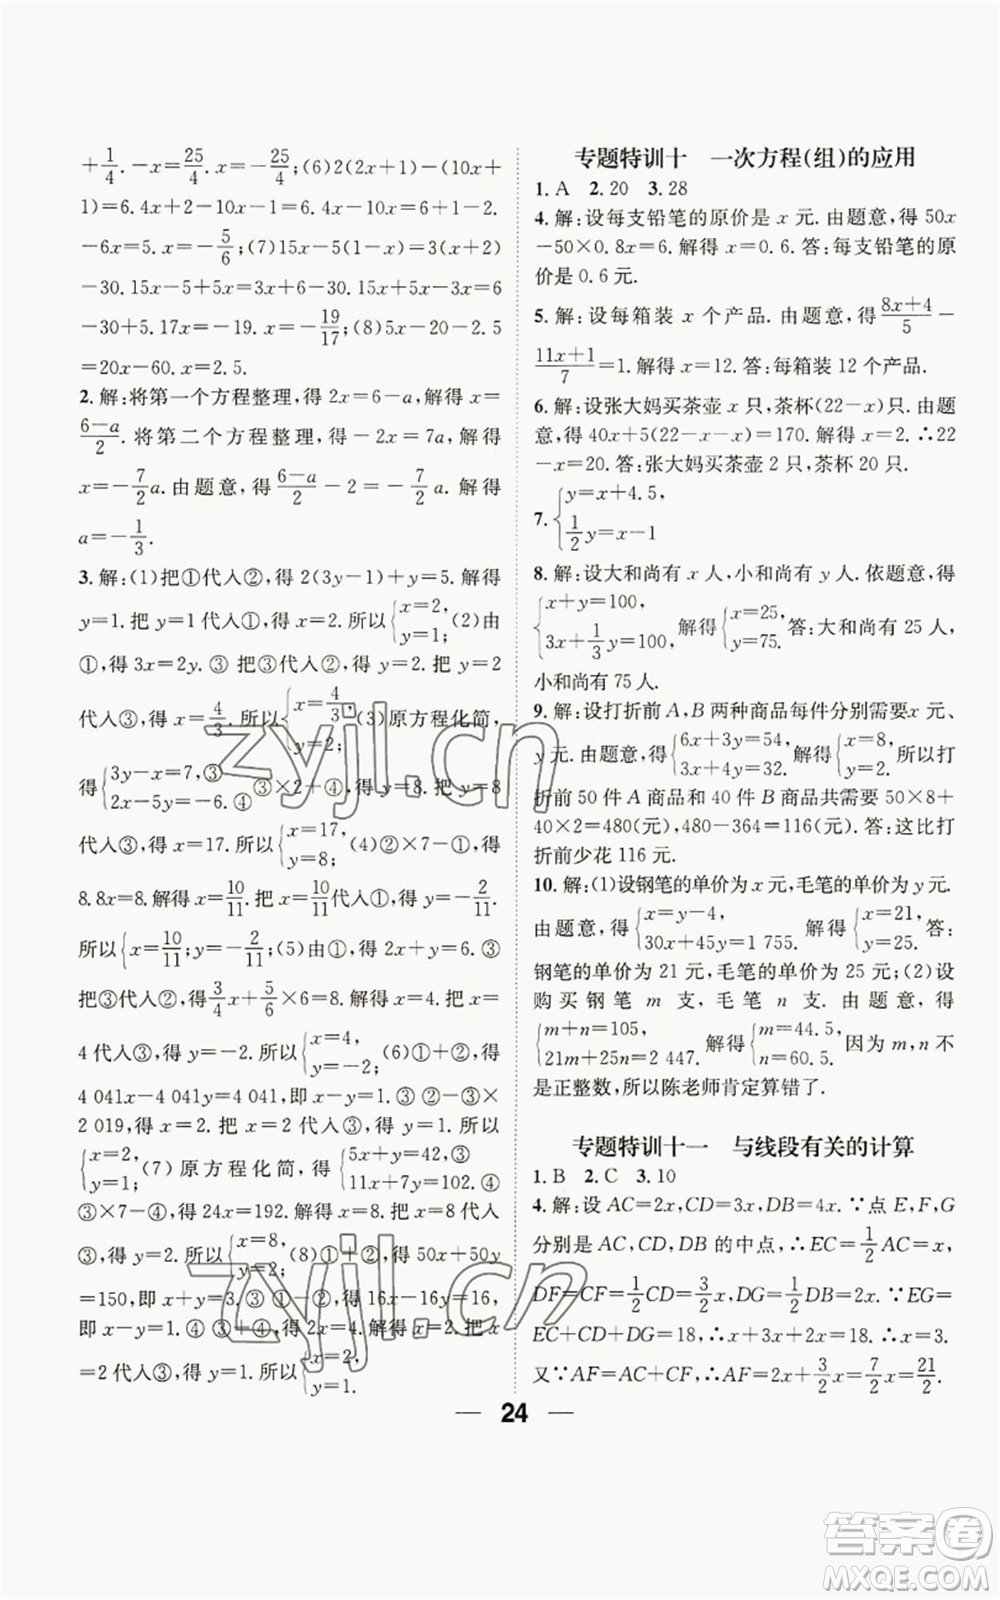 +1/4. -x=25/4. x=-25/4;(6)2(2x+1)-(10x
+1)=6. 4x+2-10x-1=6. 4x-10x=6+1-2.
-6x=5. x=-5/6;(7)15x-5(x-1)=3(3-x)
-30. 15x-5x+5=9-3x-30. 15x-5x+3x=6
-30-5. 17x=-19. x=-19/17;(8)5x-20-2.5
=20x-60. x=2.5.
2. 解:将第一个方程整理,得 2x=6-a,解得 x=
6-a/2. 将第二个方程整理,得-2x=7a,解得
x=-7/2a. 由题意,得 6-a/2-2=-7/2a. 解得
a=-1/3.
3. 解:(1)把①代入②,得 2(3y-1)+y=5. 解得
y=1. 把 y=1 代入①,得 x=2. 所以{x=2, y=1;(2)由
①,得 3x=2y. ③ 把③代入②,得 y=2. 把 y=2
代入③,得 x=4/3. 所以{x=4/3, y=2;(3)原方程化简,
得{3y-x=7,③ 2x-5y=-6. ④ ③×2+④,得 y=8. 把 y=8
代入③,得 x=17. 所以{x=17, y=8;(4)②×7-①,得
8.8x=8. 解得 x=10/11. 把 x=10/11代入①,得 y=-2/11.
所以{x=10/11, y=-2/11;(5)由①,得 2x+y=6. ③
把③代入②,得 3/4x+5/6×6=8. 解得 x=4. 把 x=
4 代入③,得 y=-2. 所以{x=4, y=-2;(6)①+②,得
4 041x-4 041y=4 041,即 x-y=1. ③ ②-③×
2 019,得 x=2. 把 x=2 代入③,得 y=1. 所以
{x=2, y=1;(7) 原方程化简,得{5x+6y=52,③ 11x+7y=102. ④
③×7-④,得 24x=192. 解得 x=8. 把 x=8 代入
③,得 y=2. 所以{x=8, y=2;(8)①+②,得 50x+50y
=150,即 x+y=3. ③ ①-②,得 16x-16y=16,
即 x-y=1. ④ ③+④,得 2x=4. 解得 x=2. 把 x
=2 代入③,得 y=1. 所以{x=2, y=1.
专题特训十 一次方程(组)的应用
1. A 2. 20 3. 28
4. 解:设每支铅笔的原价是 x 元. 由题意,得 50x
-50×0.8x=6. 解得 x=0.6. 答:每支铅笔的原
价是 0.6 元.
5. 解:设每箱装 x 个产品. 由题意,得8x+4/5-
11x+1/7=1. 解得 x=12. 答:每箱装 12 个产品.
6. 解:设张大妈买茶壶 x 只,茶杯(22-x)只. 由题
意,得 40x+5(22-x-x)=170. 解得 x=2. ∴22
-x=20. 答:张大妈买茶壶 2 只,茶杯 20 只.
7. {y=x+4.5, 1/2y=x-1
8. 解:设大和尚有 x 人,小和尚有 y 人. 依题意,得
{x+y=100, 3x+1/3y=100, 解得{x=25, y=75. 答:大和尚有 25 人,
小和尚有 75 人.
9. 解:设打折前 A,B 两种商品每件分别需要x 元、
y 元. 由题意,得{6x+3y=54, 3x+4y=32. 解得{x=8, y=2. 所以打
折前 50 件 A 商品和 40 件 B 商品共需要 50×8+
40×2=480(元),480-364=116(元). 答:这比打
折前少花 116 元.
10. 解:(1)设钢笔的单价为 x 元,毛笔的单价为 y 元.
由题意,得{x=y-4, 30x+45y=1 755. 解得{x=21, y=25. 答:
钢笔的单价为 21 元,毛笔的单价为 25 元;(2)设
购买钢笔 m 支,毛笔 n 支. 由题意,得
{m+n=105, 21m+25n=2 447. 解得{m=44.5, n=60.5. 因为 m,n 不
是正整数,所以陈老师肯定算错了.
专题特训十一 与线段有关的计算
1. B 2. C 3. 10
4. 解:设 AC=2x,CD=3x,DB=4x. ∵点 E,F,G
分别是 AC,CD,DB 的中点,∴EC=1/2AC=x,
DF=CF=1/2CD=3/2x,DG=1/2DB=2x. ∵EG=
EC+CD+DG=18,∴x+3x+2x=18. ∴x=3.
又∵AF=AC+CF,∴AF=2x+3/2x=7/2x=21/2.
— 24 —
zyjl.cn
zyjl.cn
答案圈
MXQE.COM